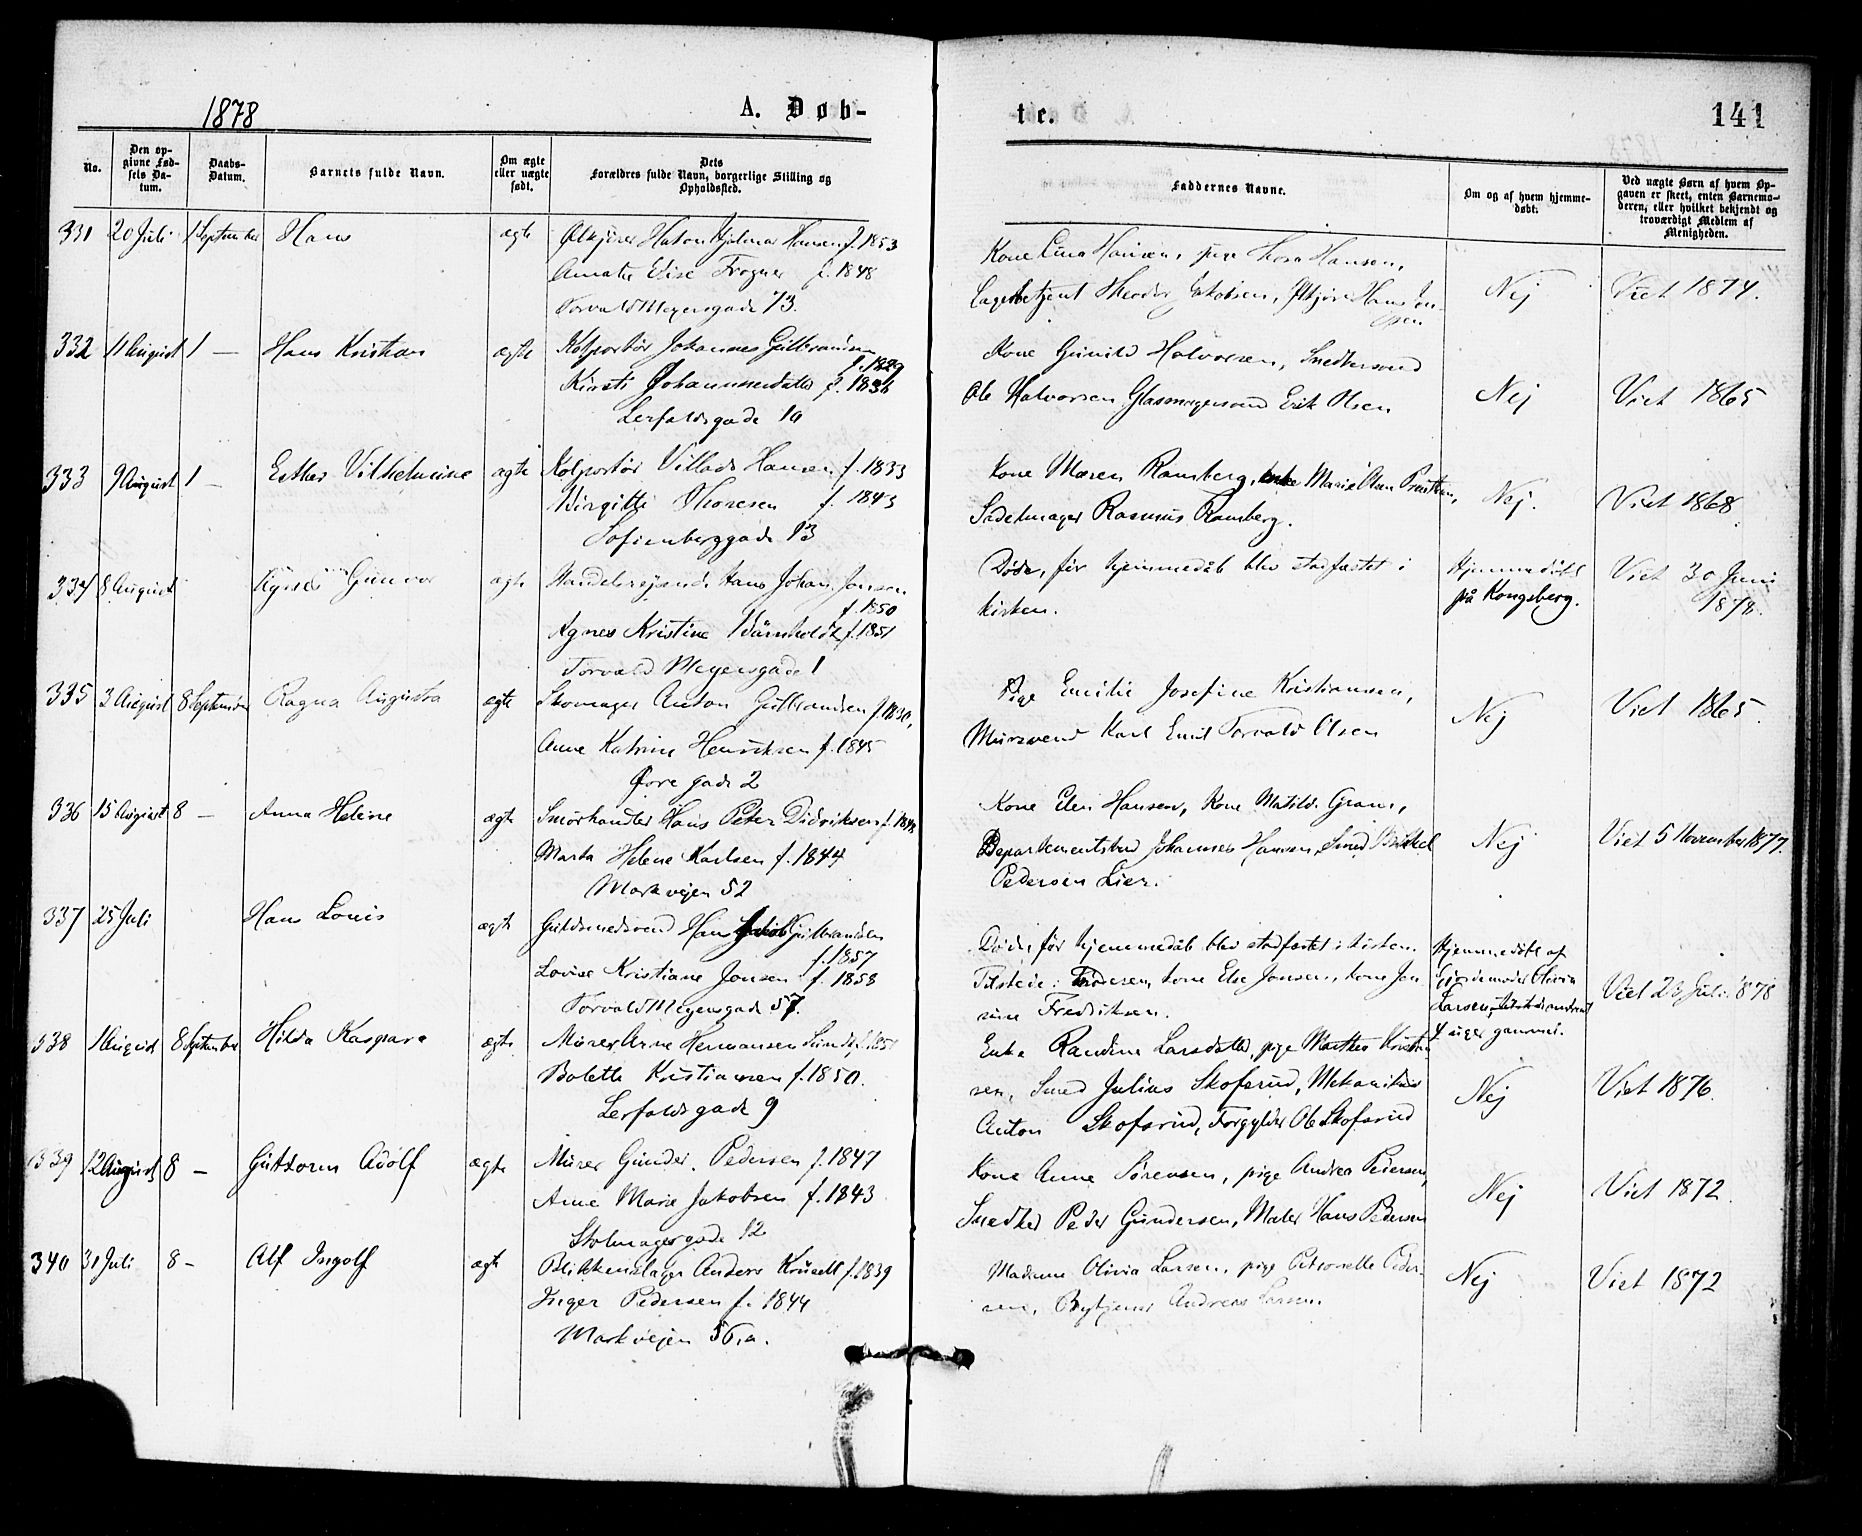 1878
A. Døb-
te.
141
No.
Den op-
givne Fød-
sels Da-
tum.
Daabs-
Datum.
Barnets fulde Navn.
Om ægte
eller uægte
født.
Dets
Forældres fulde Navn, borgerlige Stilling og
Opholdssted.
Faddernes Navne.
Om og af hvem hjemme-
døbt.
Ved uægte Børn af hvem Op-
gaven er skeet, enten Barnemo-
deren, eller hvilket bekjendt og
troværdigt Medlem af
Menigheden.
331 20 Juli 1 September Hans ægte Ølkjører Hakon Hjalmar Hansen f. 1853
Amalie Elise Frogner f. 1848
Torvald Meyersgade 73.
Kone Lina Hansen, pige Thora Hansen,
Lagerbetjent Theodor Jakobsen, Ølkjører Hans Jen-
sen
Nej
Viet 1874.
332 11 August 1 — Hans Kristian ægte Kolportør Johannes Gulbrandsen
f. 1829
Kirsti Johannesdatter f. 1834
Lerfaldsgade 10
Kone Gunild Halvorsen, Snedkersvend
Ole Halvorsen, Glasmagersvend Erik Olsen
Nej
Viet 1865
333 9 August 1 — Esther Vilhelmine ægte Kolportør Villads Hansen f. 1833
Birgitte Thoresen f. 1843
Sofienberggade 13
Kone Maren Ramberg, enke Marie Olsen
Sadelmager Rasmus Ramberg.
Nej.
Viet 1868
334 8 August Gunvor ægte Handelsrejsende Hans Johan Jensen
f. 1850
Agnes Kristine f. 1851
Torvald Meyersgade 1
Døde, før hjemmedåb blev stadfæstet i
kirken.
Hjemmedøbt
på Kongsberg.
Viet 30 Juni
1878.
335 3 August 8 September Ragna Augusta ægte Skomager Anton Gulbrandsen f. 1830,
Anne Katrine Henriksen f. 1845
Øvre gade 2
Pige Emilie Josefine Kristiansen,
Mursvend Karl Emil Torvald Olsen
Nej
Viet 1865.
336 15 August 8 — Anna Helene ægte Smørhandler Hans Peter Didriksen
Marta Helene Karlsen f. 1844
Markvejen 52
Kone Elen Hansen, Kone Matilde Gram,
Departementsbud Johannes Hansen, Smed
Pedersen Lier.
Nej
Viet 5 November 1877.
337 25 Juli Hans Louis ægte Guldsmedsvend Hans Jakob Gulbrandsen
f. 1857
Lovise Kristiane Jensen f. 1858
Torvald Meyersgade 57.
Døde, før hjemmedåb blev stadfæstet i kirken.
Tilstede: Moderen, kone Else Jensen, kone Jen
sine Fredriksen.
Hjemmedøbt af
Gjordemoder Olivia
Larsen,
4 uger gammel.
Viet 23 Juli 1878
338 1 August 8 September Hilda Kaspara ægte Murer Arne Hermansen
Bolette Kristiansen f. 1850.
Lerfaldsgade 9
Enke Randine Larsdatter, pige Marthea Kristian
sen, Smed Julius Skofsrud, Mekanikus
Anton Skofsrud, Forgylder Ole Skofsrud
Nej
Viet 1876.
339 12 August 8 — Guttorm Adolf ægte Murer Gunder Pedersen f. 1847
Anne Marie Jakobsen f. 1843
Skolmagergade 12
Kone Anne Sørensen, pige Andrea Pedersen,
Snedker Peder Gundersen, Maler Hans Pedersen
Nej
Viet 1872.
340 31 Juli 8 — Alf Ingolf ægte Blikkenslager Anders Krusell f. 1839
Inger Pedersen f. 1844
Markvejen 56,a.
Madame Olivia Larsen, pige Petronelle Peder-
sen, Andreas Larsen.
Nej
Viet 1872